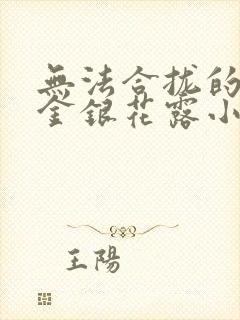 無法合拢的
金銀花露小
王陽